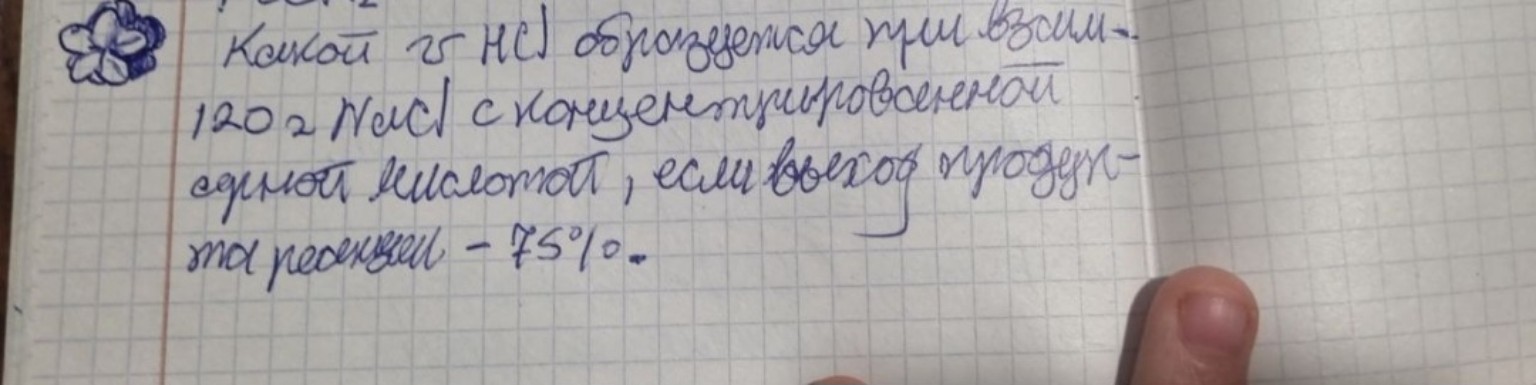 Какой V HCl образуется при взаим-
120 г NaCl с концентрированной
серной кислотой, если выход продук-
та реакции - 75%.